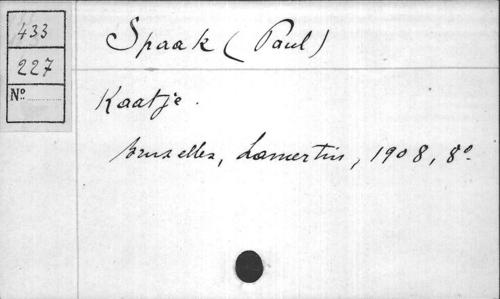 433
227
N°
Spaak (Paul)
Kaatje.
Bruxelles, Lamertin, 1908, 8°.